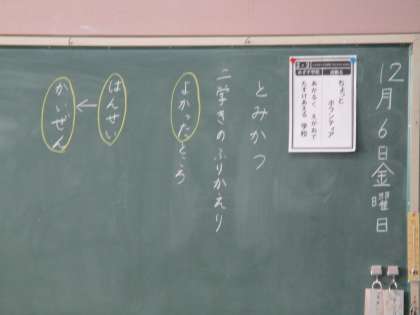 12月6日金曜日
ちょっと
ボランティア
あかるく、えがおで
たすけあえる 学校
とみかつ
二学きのふりかえり
よかったところ
はんせい
←
かいぜん